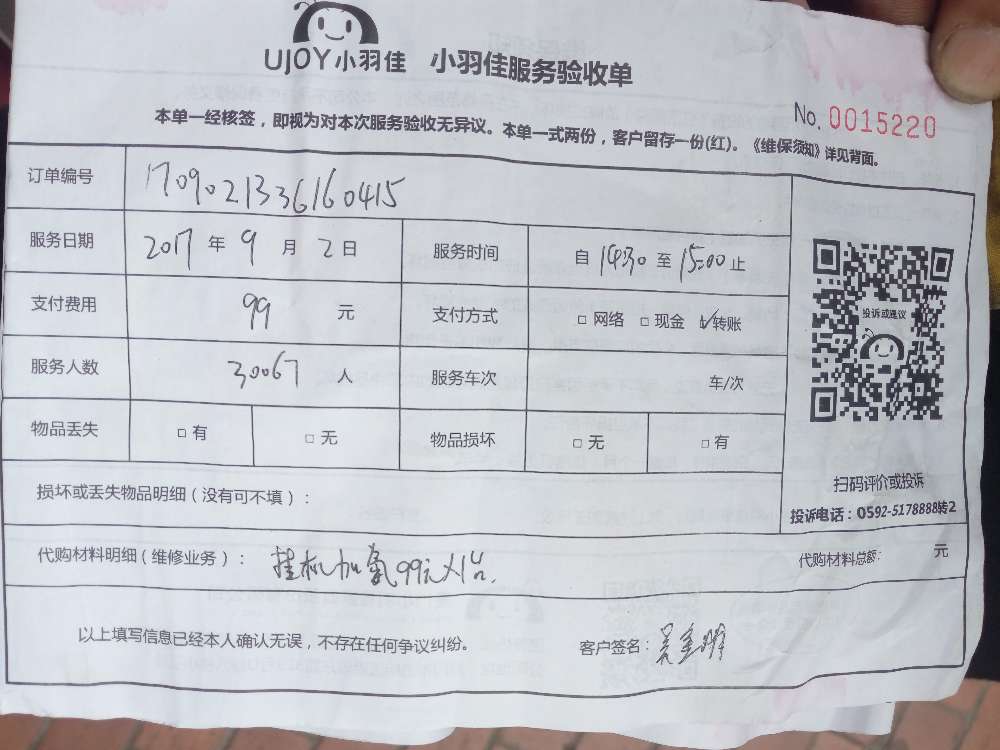 UJOY小羽佳 小羽佳服务验收单
No. 0015220
本单一经核签，即视为对本次服务验收无异议。本单一式两份，客户留存一份(红)。《维保须知》详见背面。
订单编号 1709021336160415
服务日期 2017 年 9 月 2 日 服务时间 自 1430 至 15:00 止
支付费用 99 元 支付方式 □ 网络 □ 现金 ☑ 转账
服务人数 30067 人 服务车次 车/次
物品丢失 □ 有 □ 无 物品损坏 □ 无 □ 有
投诉或建议
扫码评价或投诉
投诉电话：0592-5178888转2
损坏或丢失物品明细（没有可不填）：
代购材料明细（维修业务）： 挂机加氟99元×1台. 代购材料总额： 元
以上填写信息已经本人确认无误，不存在任何争议纠纷。 客户签名：